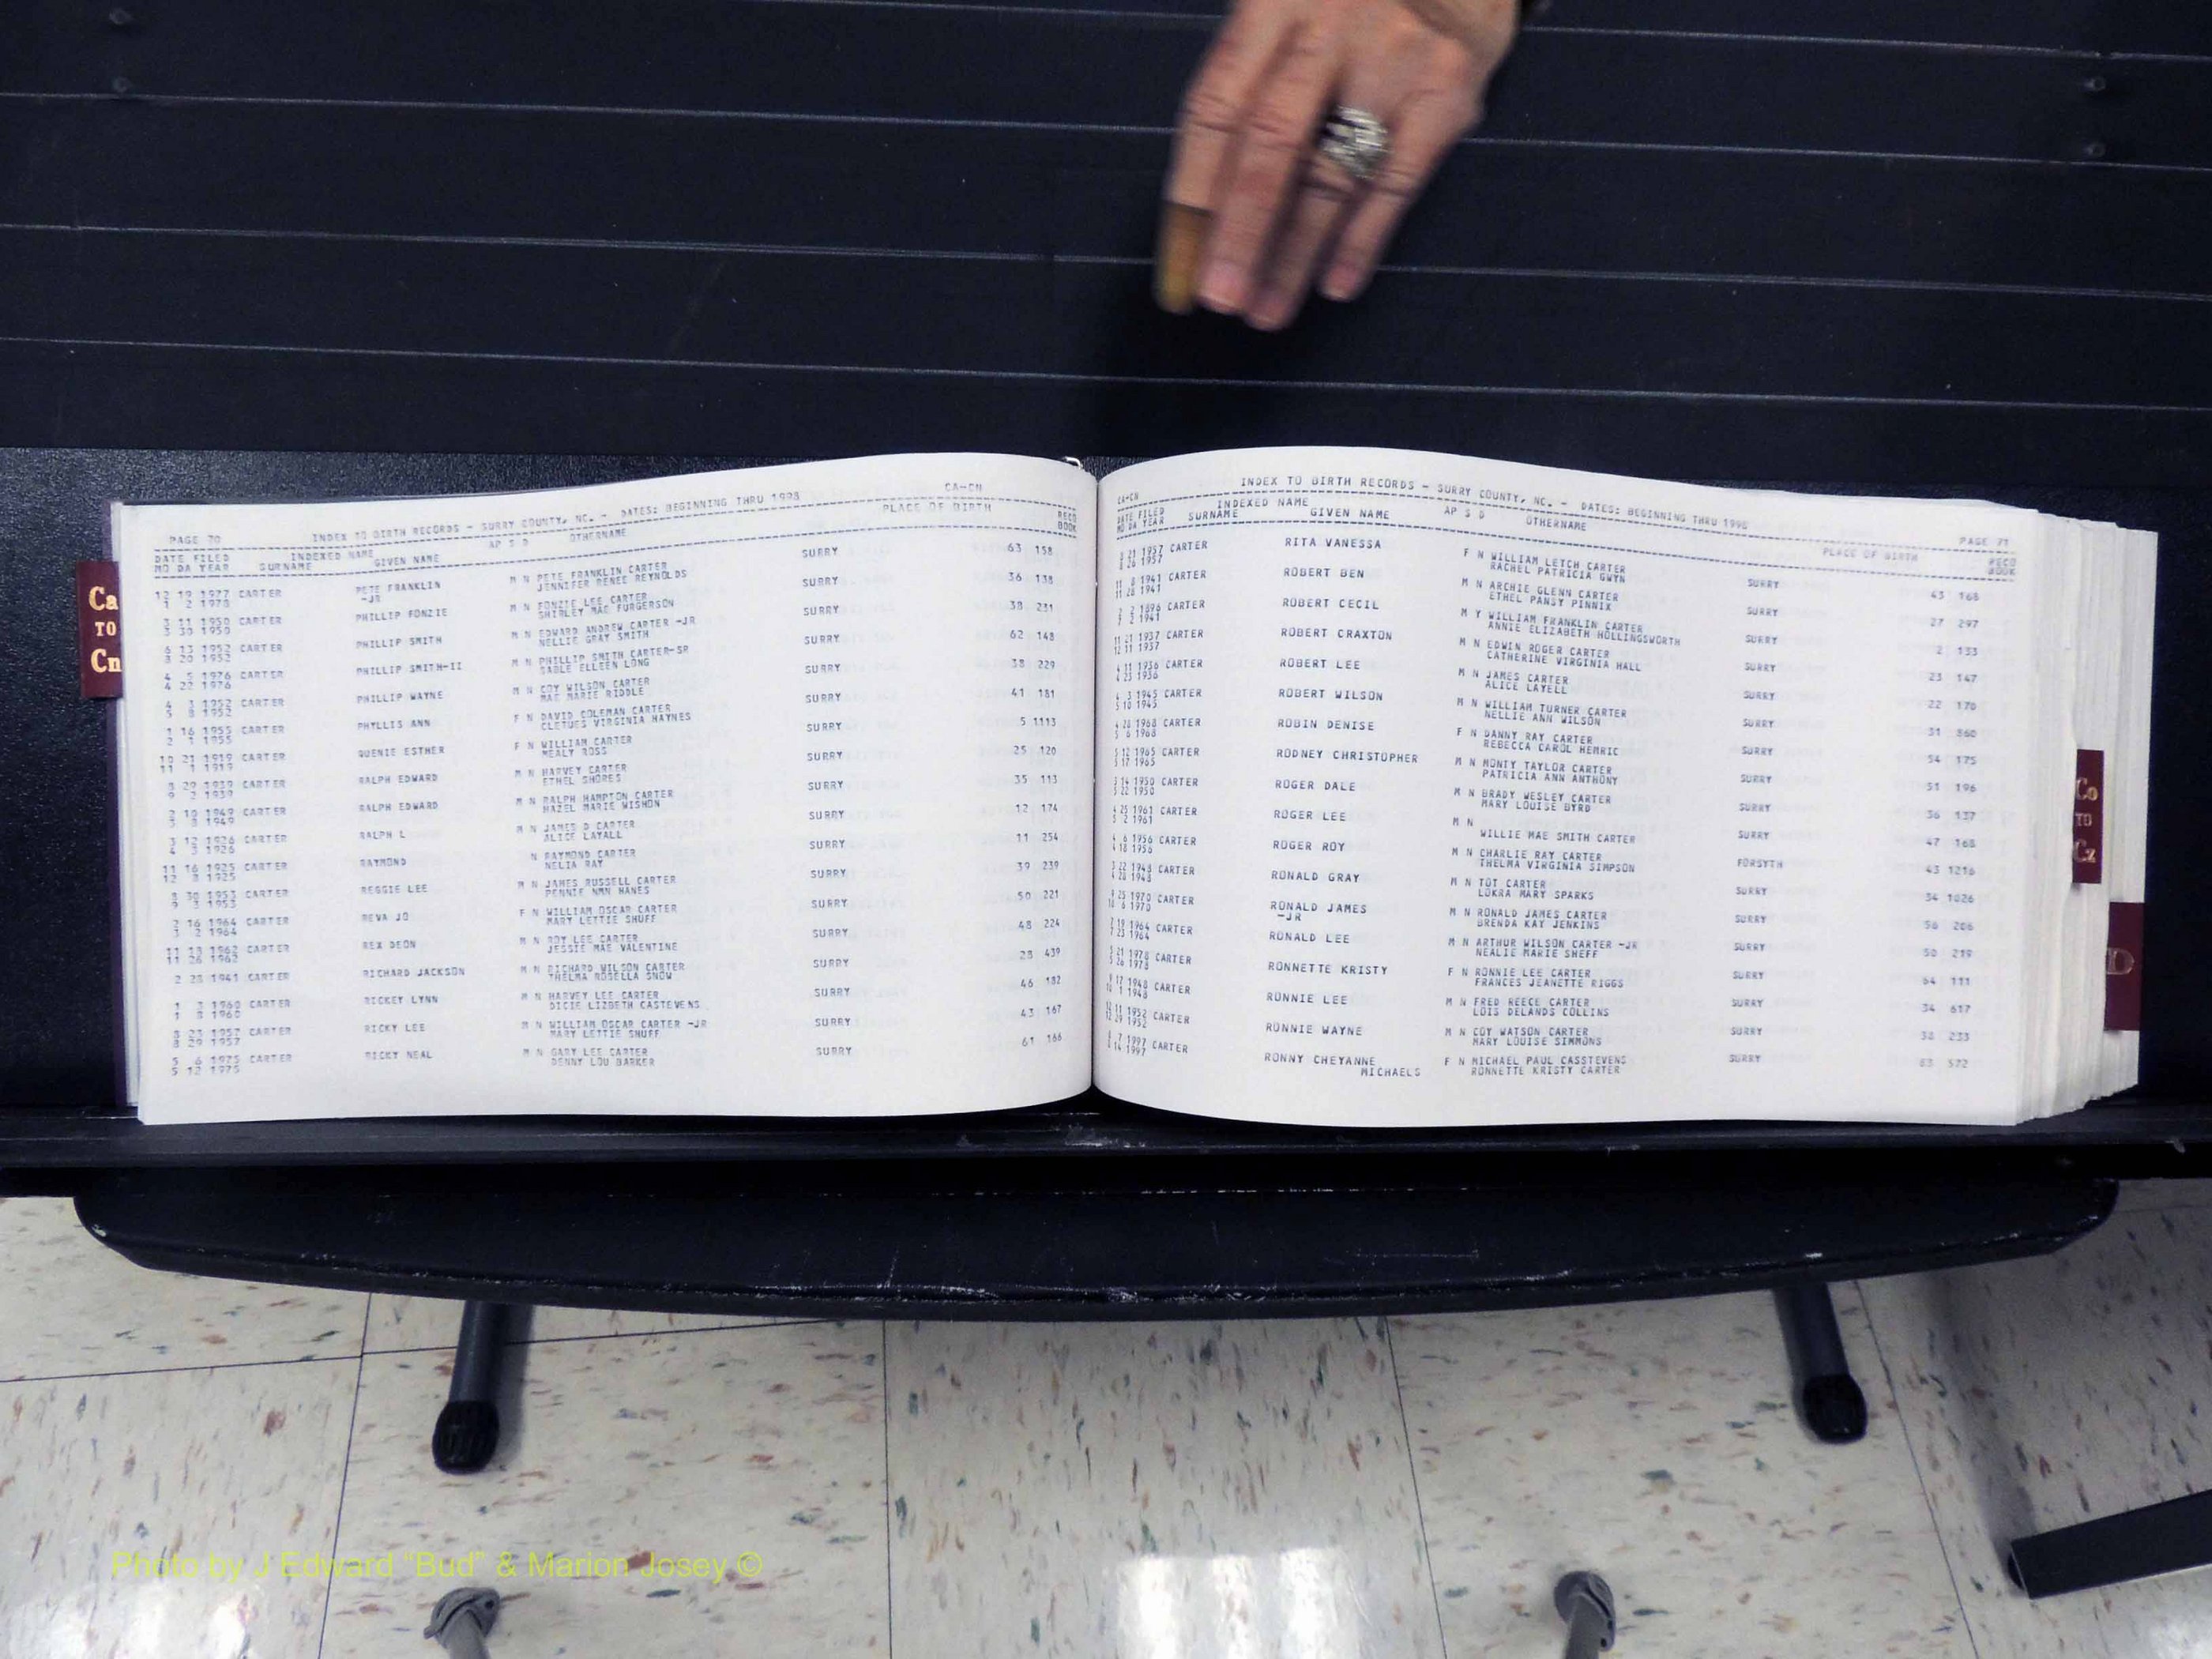 PAGE 70 INDEX TO BIRTH RECORDS - SURRY COUNTY, NC. - DATES: BEGINNING THRU 1993 CA-CN
DATE FILED INDEXED NAME AP S D OTHERNAME PLACE OF BIRTH RECD
MO DA YEAR SURNAME GIVEN NAME BOOK
12 19 1977 CARTER PETE FRANKLIN M N PETE FRANKLIN CARTER SURRY 63 158
1 2 1978 -JR JENNIFER RENEE REYNOLDS
3 11 1950 CARTER PHILLIP FONZIE M N FONZIE LEE CARTER SURRY 36 138
3 30 1950 SHIRLEY MAE FURGERSON
6 13 1952 CARTER PHILLIP SMITH M N EDWARD ANDREW CARTER -JR SURRY 38 231
8 20 1952 NELLIE GRAY SMITH
4 5 1976 CARTER PHILLIP SMITH-II M N PHILLIP SMITH CARTER-SR SURRY 62 148
4 22 1976 SABLE ELLEEN LONG
4 3 1952 CARTER PHILLIP WAYNE M N COY WILSON CARTER SURRY 38 229
5 8 1952 MAE MARIE RIDDLE
1 16 1955 CARTER PHYLLIS ANN F N DAVID COLEMAN CARTER SURRY 41 181
2 1 1955 CLETUES VIRGINIA HAYNES
10 21 1919 CARTER QUENIE ESTHER F N WILLIAM CARTER SURRY 5 1113
11 1 1919 MEALY ROSS
8 29 1939 CARTER RALPH EDWARD M N HARVEY CARTER SURRY 25 120
9 2 1939 ETHEL SHORES
2 10 1949 CARTER RALPH EDWARD M N RALPH HAMPTON CARTER SURRY 35 113
3 8 1949 HAZEL MARIE WISHON
3 12 1926 CARTER RALPH L M N JAMES D CARTER SURRY 12 174
4 3 1926 ALICE LAYALL
11 16 1925 CARTER RAYMOND N RAYMOND CARTER SURRY 11 254
12 8 1925 NELIA RAY
8 30 1953 CARTER REGGIE LEE M N JAMES RUSSELL CARTER SURRY 39 239
9 3 1953 PENNIE NMN HANES
2 16 1964 CARTER REVA JO F N WILLIAM OSCAR CARTER SURRY 50 221
3 2 1964 MARY LETTIE SHUFF
11 13 1962 CARTER REX DEON M N ROY LEE CARTER SURRY 48 224
11 26 1962 JESSIE MAE VALENTINE
2 28 1941 CARTER RICHARD JACKSON M N RICHARD WILSON CARTER SURRY 28 439
THELMA ROSELLA SNOW
1 3 1960 CARTER RICKEY LYNN M N HARVEY LEE CARTER SURRY 46 182
1 8 1960 DICIE LIZBETH CASTEVENS
8 23 1957 CARTER RICKY LEE M N WILLIAM OSCAR CARTER -JR SURRY 43 167
8 29 1957 MARY LETTIE SHUFF
5 6 1975 CARTER RICKY NEAL M N GARY LEE CARTER SURRY 61 166
5 12 1975 DENNY LOU BARKER
CA-CN INDEX TO BIRTH RECORDS - SURRY COUNTY, NC. - DATES: BEGINNING THRU 1998 PAGE 71
DATE FILED INDEXED NAME AP S D OTHERNAME PLACE OF BIRTH RECD
MO DA YEAR SURNAME GIVEN NAME BOOK
8 21 1957 CARTER RITA VANESSA F N WILLIAM LETCH CARTER SURRY 43 168
8 26 1957 RACHEL PATRICIA GWYN
11 8 1941 CARTER ROBERT BEN M N ARCHIE GLENN CARTER SURRY 27 297
11 28 1941 ETHEL PANSY PINNIX
2 2 1896 CARTER ROBERT CECIL M Y WILLIAM FRANKLIN CARTER SURRY 2 133
1941 ANNIE ELIZABETH HOLLINGSWORTH
11 21 1937 CARTER ROBERT CRAXTON M N EDWIN ROGER CARTER SURRY 23 147
12 11 1937 CATHERINE VIRGINIA HALL
4 11 1936 CARTER ROBERT LEE M N JAMES CARTER SURRY 22 170
4 25 1936 ALICE LAYELL
4 3 1945 CARTER ROBERT WILSON M N WILLIAM TURNER CARTER SURRY 31 560
5 10 1945 NELLIE ANN WILSON
4 28 1968 CARTER ROBIN DENISE F N DANNY RAY CARTER SURRY 54 175
5 6 1968 REBECCA CAROL HEMRIC
5 12 1965 CARTER RODNEY CHRISTOPHER M N MONTY TAYLOR CARTER SURRY 51 196
5 17 1965 PATRICIA ANN ANTHONY
3 14 1950 CARTER ROGER DALE M N BRADY WESLEY CARTER SURRY 36 137
3 22 1950 MARY LOUISE BYRD
4 25 1961 CARTER ROGER LEE M N SURRY 47 168
5 2 1961 WILLIE MAE SMITH CARTER
4 6 1956 CARTER ROGER ROY M N CHARLIE RAY CARTER FORSYTH 43 1216
4 18 1956 THELMA VIRGINIA SIMPSON
3 22 1948 CARTER RONALD GRAY M N TOT CARTER SURRY 34 1026
4 28 1948 LOKRA MARY SPARKS
9 25 1970 CARTER RONALD JAMES M N RONALD JAMES CARTER SURRY 56 206
10 6 1970 -JR BRENDA KAY JENKINS
7 19 1964 CARTER RONALD LEE M N ARTHUR WILSON CARTER -JR SURRY 50 219
7 23 1964 NEALIE MARIE SHEFF
5 21 1978 CARTER RONNETTE KRISTY F N RONNIE LEE CARTER SURRY 64 111
5 26 1978 FRANCES JEANETTE RIGGS
9 17 1948 CARTER RONNIE LEE M N FRED REECE CARTER SURRY 34 617
10 1 1948 LOIS DELANDS COLLINS
12 11 1952 CARTER RONNIE WAYNE M N COY WATSON CARTER SURRY 38 233
12 29 1952 MARY LOUISE SIMMONS
7 1997 CARTER RONNY CHEYANNE F N MICHAEL PAUL CASSTEVENS SURRY 83 572
14 1997 MICHAELS RONNETTE KRISTY CARTER
Ca
TO
Cn
Co
TO
Cz
D
Photo by J Edward "Bud" & Marion Josey ©